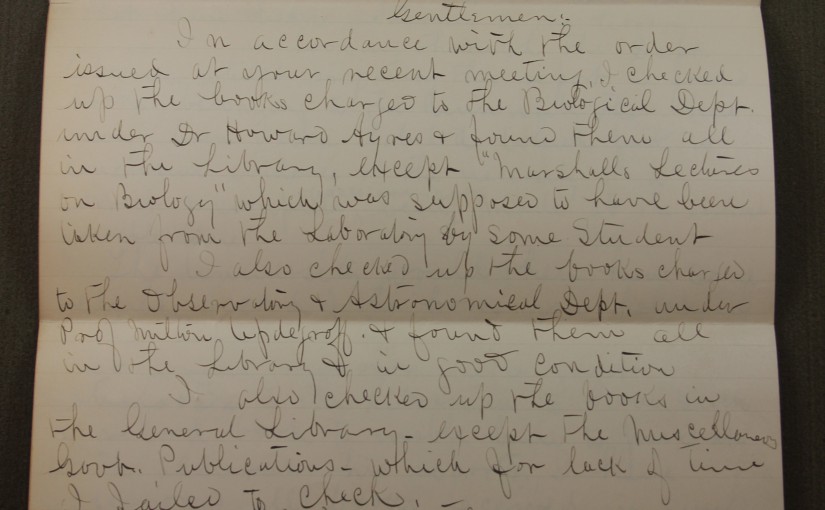 Gentlemen:
In accordance with the order
issued at your recent meeting, I checked
up the books charged to the Biological Dept.
under Dr Howard Ayres & found them all
in the Library, except "Marshalls Lectures
on Biology" which was supposed to have been
taken from the Laboratory by some Student
I also checked up the books charged
to the Observatory & Astronomical Dept. under
Prof Milton Updegraff. & found them all
in the Library & in good condition
I also checked up the books in
the General Library - except the Miscellaneous
Govt. Publications - which for lack of time
I failed to check. -